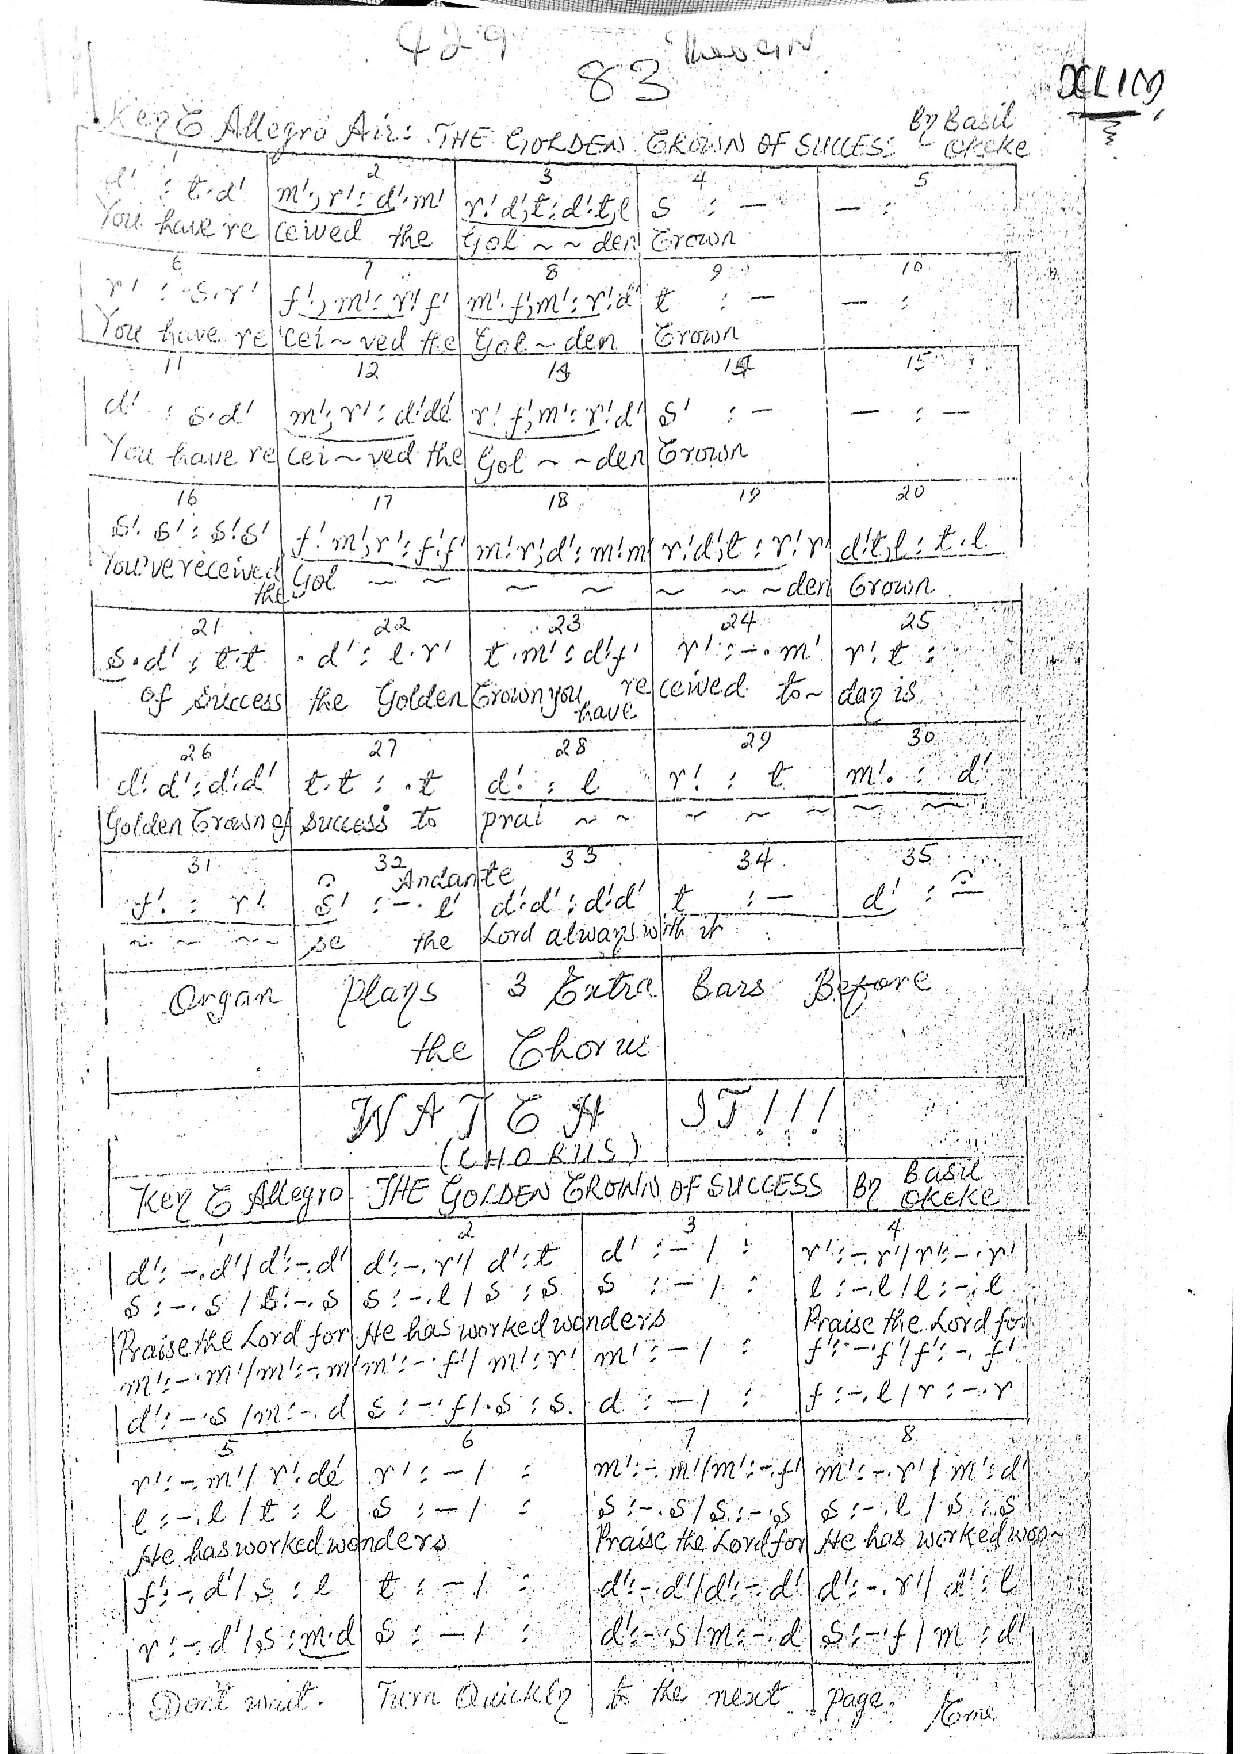 429
83
Key C Allegro Air: THE GOLDEN CROWN OF SUCCESS By Basil Okeke
1 2 3 4 5
d' : t.d' m'., r' : d'.m' r'.d', t : d'.t, l s : — — :
You have re ceived the Gol ~ ~ den Crown
6 7 8 9 10
r' : s.r' f'., m' : r'.f' m'.f', m' : r'.d' t : — — :
You have re cei ~ ved the Gol ~ den Crown
11 12 13 14 15
d' : s.d' m'., r' : d'.dé r'.f', m' : r'.d' s' : — — : —
You have re cei ~ ved the Gol ~ ~ den Crown
16 17 18 19 20
s'.s' : s'.s' f'.m', r' : f'.f' m'.r', d' : m'.m' r'.d', t : r'.r' d'.t, l : t.l
You've received the Gol ~ ~ ~ ~ ~ ~ ~ den Crown
21 22 23 24 25
s.d' : t.t . d' : l.r' t.m' : d'.f' r' : —. m' r'.t :
of success the Golden Crown you have re ceived to ~ day is
26 27 28 29 30
d'.d' : d'.d' t.t : .t d'. : l r'. : t m'. : d'
Golden Crown of success to prai ~ ~ ~ ~ ~ ~ ~ ~
31 32 33 34 35
Andante
f'. : r'. s' : —. l' d'.d' : d'.d' t : — d' : —
~ ~ ~ ~ ~ se the Lord always with it
Organ Plays 3 Extra Bars Before
the Chorus
WATCH IT!!!
(CHORUS)
Key C Allegro THE GOLDEN CROWN OF SUCCESS By Basil Okeke
1 2 3 4
d' : —. d' / d' : —. d' d' : —. r' / d' : t d' : — / : r' : —. r' / r' : —. r'
s : —. s / s : —. s s : —. l / s : s s : — / : l : —. l / l : —. l
Praise the Lord for He has worked wonders Praise the Lord for
m' : —. m' / m' : —. m' m' : —. f' / m' : r' m' : — / : f' : —. f' / f' : —. f'
d' : —. s / m : —. d s : —. f / s : s. d : — / : f : —. l / r : —. r
5 6 7 8
r' : —. m' / r' : dé r' : — / : m' : —. m' / m' : —. f' m' : —. r' / m' : d'
l : —. l / t : l s : — / : s : —. s / s : —. s s : —. l / s : s
He has worked wonders Praise the Lord for He has worked won ~
f' : —. d' / s : l t : — / : d' : —. d' / d' : —. d' d' : —. r' / d' : l
r : —. d' / s : m.d s : — / : d' : —. s / m : —. d s : —. f / m : d'
Don't wait. Turn Quickly to the next page.